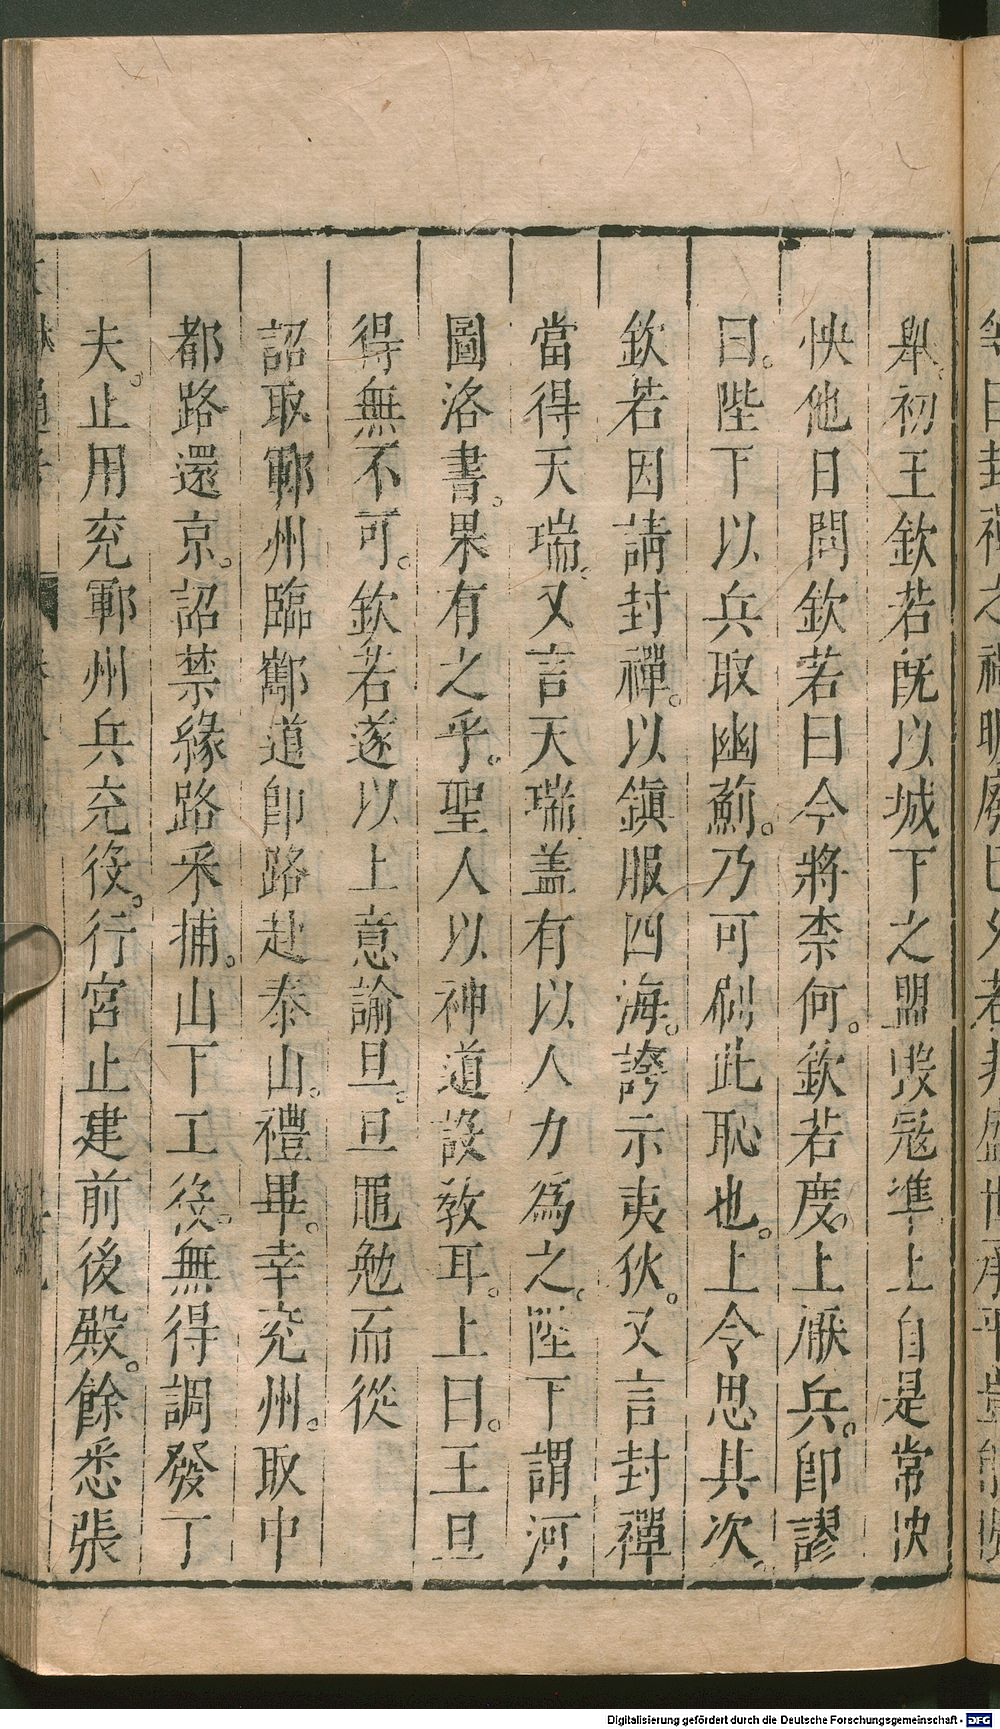 舉。初王欽若既以城下之盟毀冦準上自是常怏
怏他日問欽若曰今將柰何。欽若度。上厭兵。卽謬
曰。陛下以兵取幽薊。乃可刷此恥也。上令思其次。
欽若因請封禪。以鎮服四海。誇示夷狄。又言封禪
當得天瑞。又言天瑞盖有以人力爲之。陛下謂河
圖洛書。果有之乎。聖人以神道設敎耳。上曰。王旦
得無不可。欽若遂以上意諭旦。旦黽勉而從
詔取鄆州臨鄒道卽路赴泰山。禮畢。幸兖州。取中
都路還京。詔禁緣路采捕。山下工役。無得調發丁
夫。止用兖鄆州兵充役。行宮止建前後殿。餘悉張
Digitalisierung gefördert durch die Deutsche Forschungsgemeinschaft - DFG